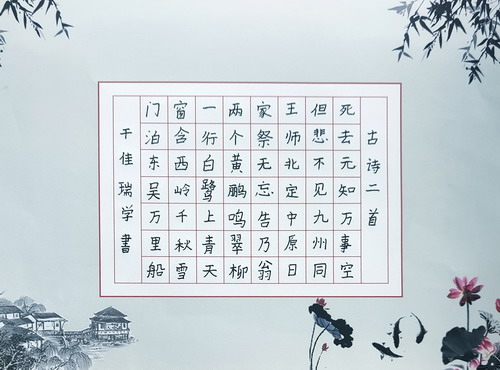 古诗二首
死去元知万事空
但悲不见九州同
王师北定中原日
家祭无忘告乃翁
两个黄鹂鸣翠柳
一行白鹭上青天
窗含西岭千秋雪
门泊东吴万里船
千佳瑞学書